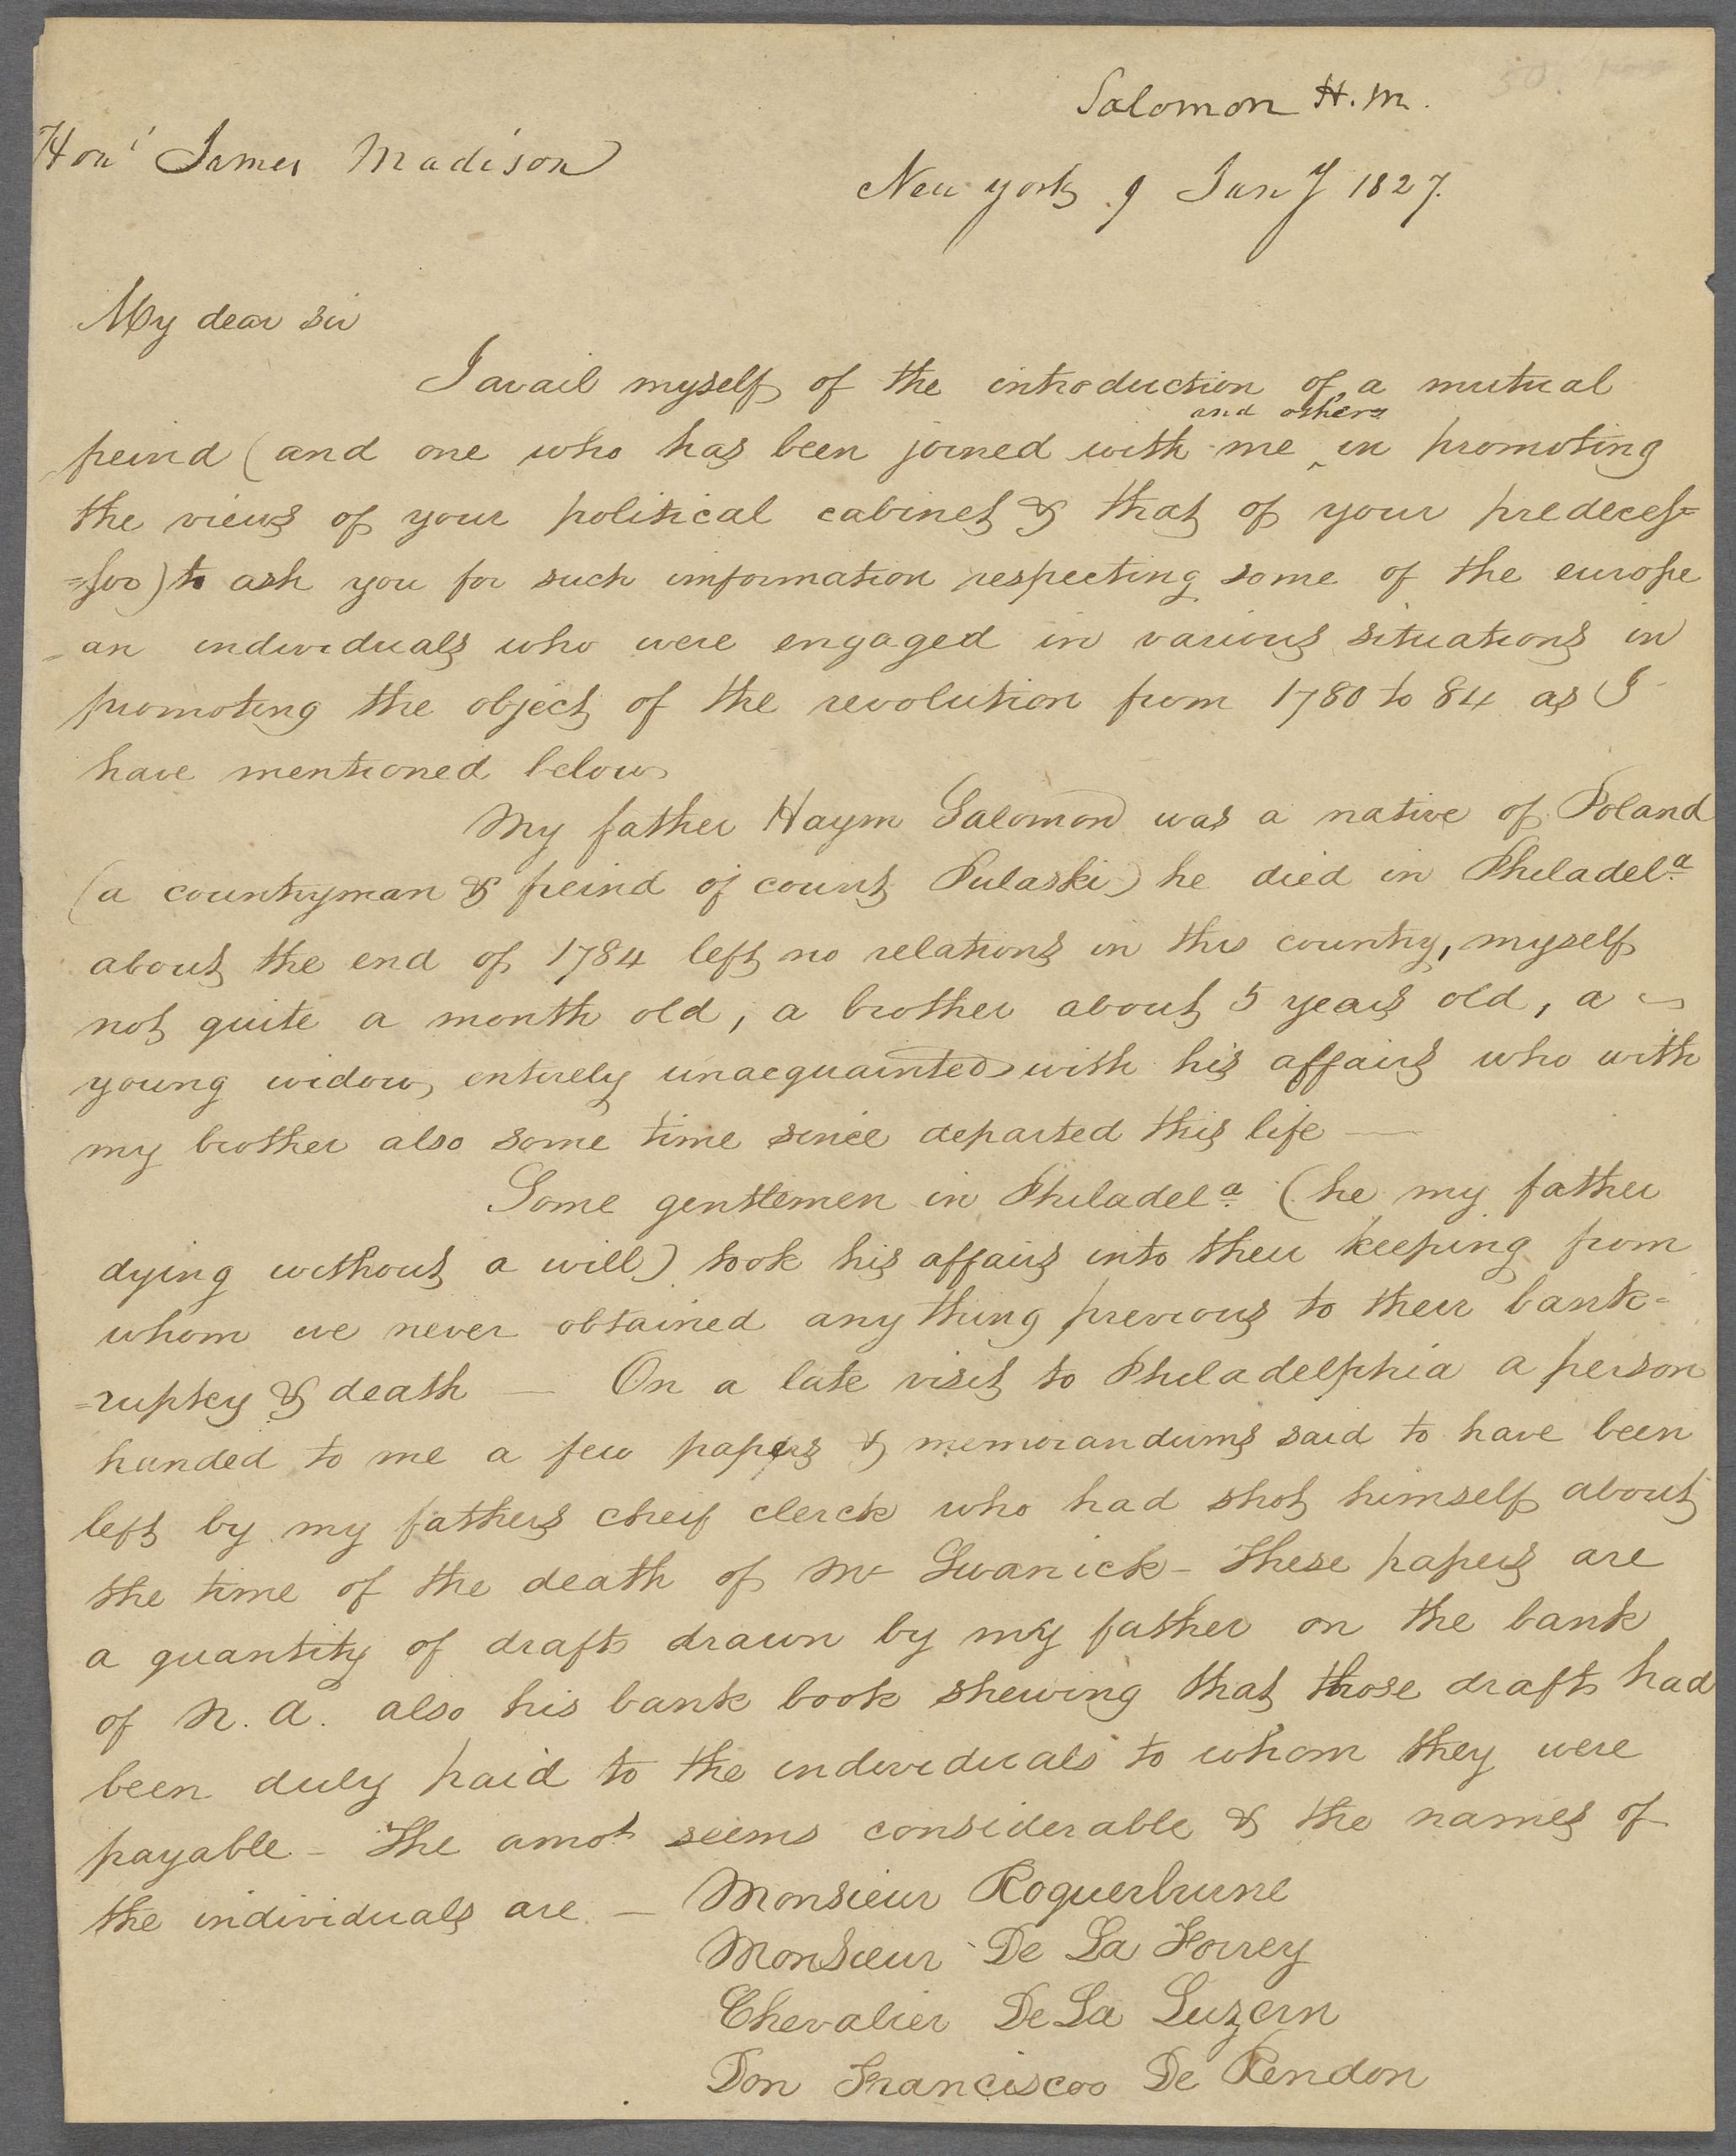 Salomon H. M.
Honl James Madison
New york 9 Jany 1827.
My dear sir
I avail myself of the introduction of a mutual
and others
freind (and one who has been joined with me ^ in promoting
the views of your political cabinet & that of your predeces=
=sor) to ask you for such imformation respecting some of the europe
-an individuals who were engaged in various situations in
promoting the object of the revolution from 1780 to 84 as I
have mentioned below
My father Haym Salomon was a native of Poland
(a countryman & freind of count Pulaski) he died in Philadela
about the end of 1784 left no relations in this country, myself
not quite a month old, a brother about 5 years old, a
young widow, entirely unacquainted with his affairs who with
my brother also some time since departed this life —
Some gentlemen in Philadela (he my father
dying without a will) took his affairs into their keeping from
whom we never obtained any thing previous to their bank-
=ruptcy & death — On a late visit to Philadelphia a person
handed to me a few papers & memorandums said to have been
left by my fathers cheif clerck who had shot himself about
the time of the death of Mr Swanick - These papers are
a quantity of drafts drawn by my father on the bank
of N. A. also his bank book shewing that those drafts had
been duly paid to the individuals to whom they were
payable - The amot seems considerable & the names of
the individuals are — Monsieur Roquerbrune
Monsieur De La Forrey
Chevalier De La Luzern
Don Franciscoo De Rendon